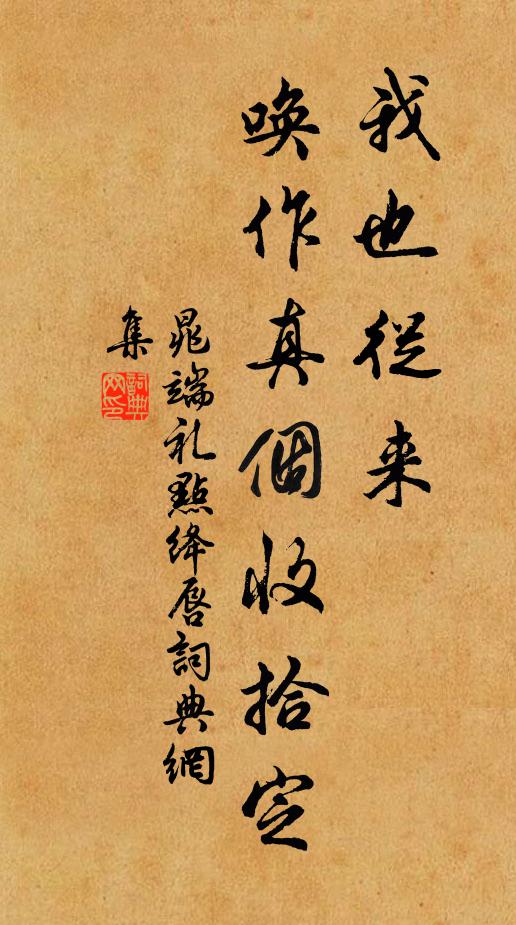 我也從来
喚作真個收拾定
晁端礼點绛唇詞典網
集
詞典網印